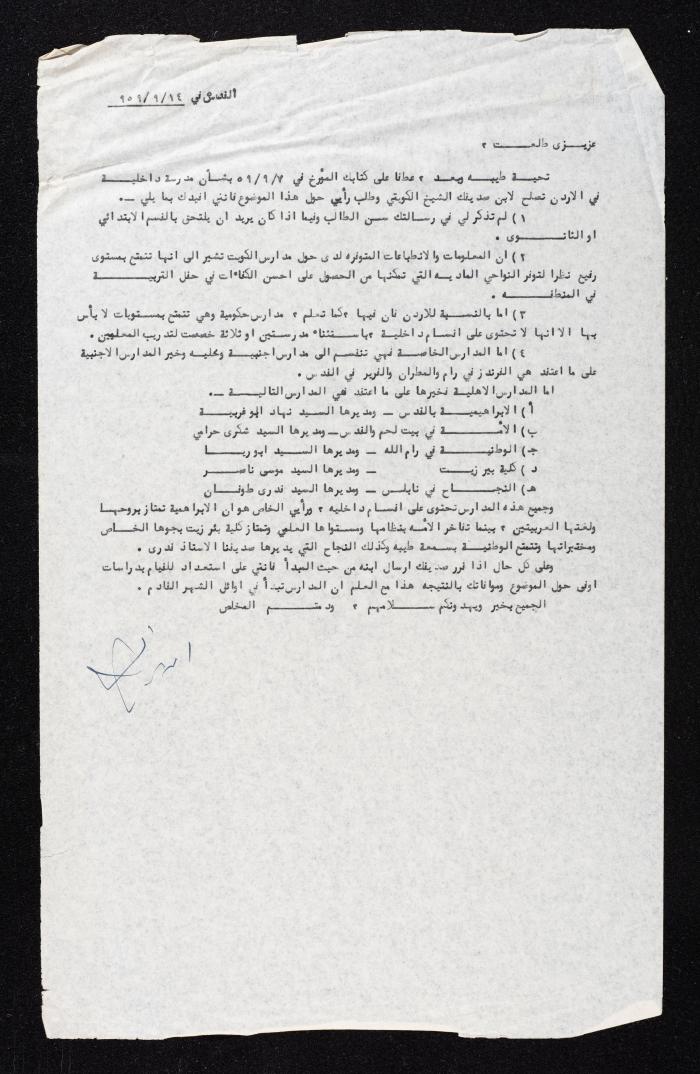 القدس في ٩٥٩/٩/١٤
عزيزي طلعت ؟
تحيـة طيبـه وبعد ؟ عطفا على كتابك المؤرخ في ٥٩/٩/٧ بشأن مدرسة داخليـة
في الاردن تصلح لابن صديقك الشيخ الكويتي وطلب رأيي حول هذا الموضوع فانني افيدك بما يلي ـ.
١) لم تذكر لي في رسالتك سـن الطالب وفيما اذا كان يريد ان يلتحق بالقسم الابتدائي
او الثانـوي .
٢) ان المعلومات والانطباعات المتوفره لدى حول مدارس الكويت تشير الى انها تتمتع بمستوى
رفيع نظرا لتوفر النواحي الماديـه التي تمكنها من الحصول على احسن الكفاءات في حقل التربيـة
في المنطقـه .
٣) اما بالنسبة للاردن فان فيها ؟ كما تعلم ؟ مدارس حكومية وهي تتمتع بمستويات لا بأس
بها الا انها لا تحتوى على اقسام داخلية ؟ باستثناء مدرستين او ثلاثة خصصت لتدريب المعلمين .
٤) اما المدارس الخاصـة فهي تنقسم الى مدارس اجنبيـة ومحليه وخير المدارس الاجنبية
على ما اعتقد هي الفرندز في رام والمطران والفرير في القدس .
اما المدارس الاهلية فخيرها على ما اعتقد هي المدارس التاليـة ـ.
أ) الابراهيميـة بالقدس ـ ومديرها السيد نهاد ابو غربيـة
ب) الامـة في بيت لحم والقدس ـ ومديرها السيد شكرى حرامي
جـ) الوطنيـة في رام الله ـ ومديرها السـيد ابو ريـا
د) كلية بير زيـت ـ ومديرها السيد موسى ناصـر
هـ) النجـاح في نابلـس ـ ومديرها السيد قدرى طوقـان
وجميع هذه المدارس تحتوى على اقسام داخليه ؟ ورأيي الخاص هو ان الابراهمية تمتاز بروحهـا
ولغتها العربيتين ؟ بينما تفاخر الامـه بنظامها ومستواها العلمي وتمتاز كلية بئر زيت بجوها الخـاص
ومختبراتها وتتمتع الوطنيـة بسـمعة طيبه وكذلك النجاح التي يديرها صديقنا الاستاذ قدرى .
وعلى كل حال اذا قرر صديقك ارسال ابنه من حيث المبدأ فانني على استعداد للقيام بدراسات
اوفى حول الموضوع وموافاتك بالنتيجه هذا مع العلم ان المدارس تبدأ في اوائل الشهر القادم .
الجميع بخير ويهدونكم سـلامهم ؟ ودمتـم المخلص